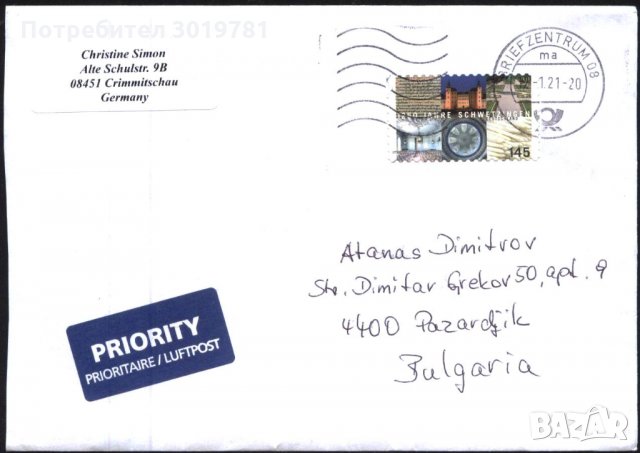 Потребител 3019781
Christine Simon
Alte Schulstr. 9B
08451 Crimmitschau
Germany
BRIEFZENTRUM 08
ma
-1.21-20
1250 JAHRE SCHWETZINGEN
145
Atanas Dimitrov
Str. Dimitar Grekov 50, apt. 9
4400 Pazardjik
Bulgaria
PRIORITY
PRIORITAIRE / LUFTPOST
BAZAR